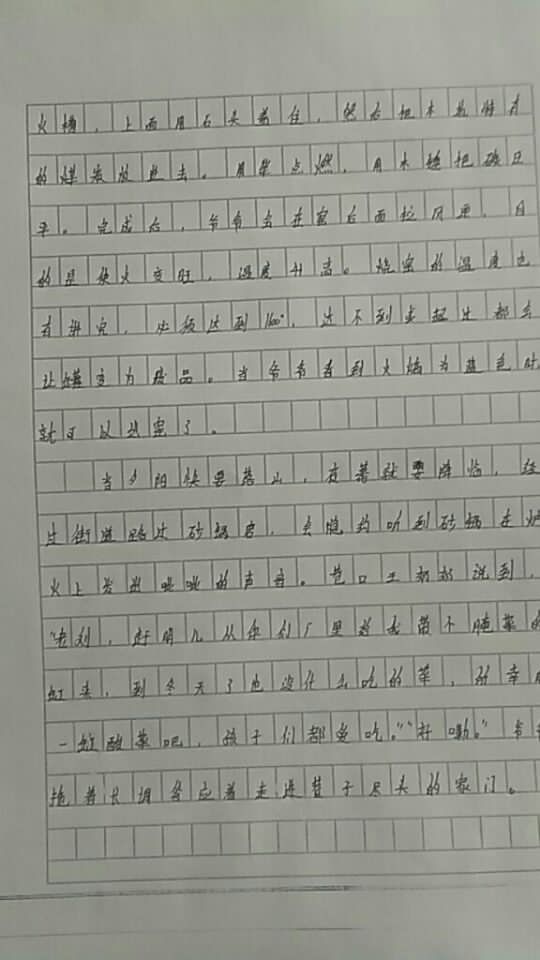 火槽，上面用石头盖住，然后把木炭特有
的煤炭放进去。用柴点燃，用木锤把碳压
平。完成后，爷爷会在窑后面拉风更，目
的是使火变旺，温度升高。烧窑的温度也
有讲究，必须达到1100°，达不到或超过都会
让罐变为废品。当爷爷看到火焰为蓝色时
就可以出窑了。
当夕阳快要落山，夜幕就要降临，经
过街道路过砂锅店，会隐约听到砂锅在炉
火上发出吡吡的声音。巷口王奶奶说到，
"老刘，赶明儿从你们厂里给我带个腌菜的
缸来，到冬天了也没什么吃的菜，
一缸酸菜吧，孩子们都爱吃。""好嘞。"爷爷
拖着长调答应着走进巷子尽头的家门。